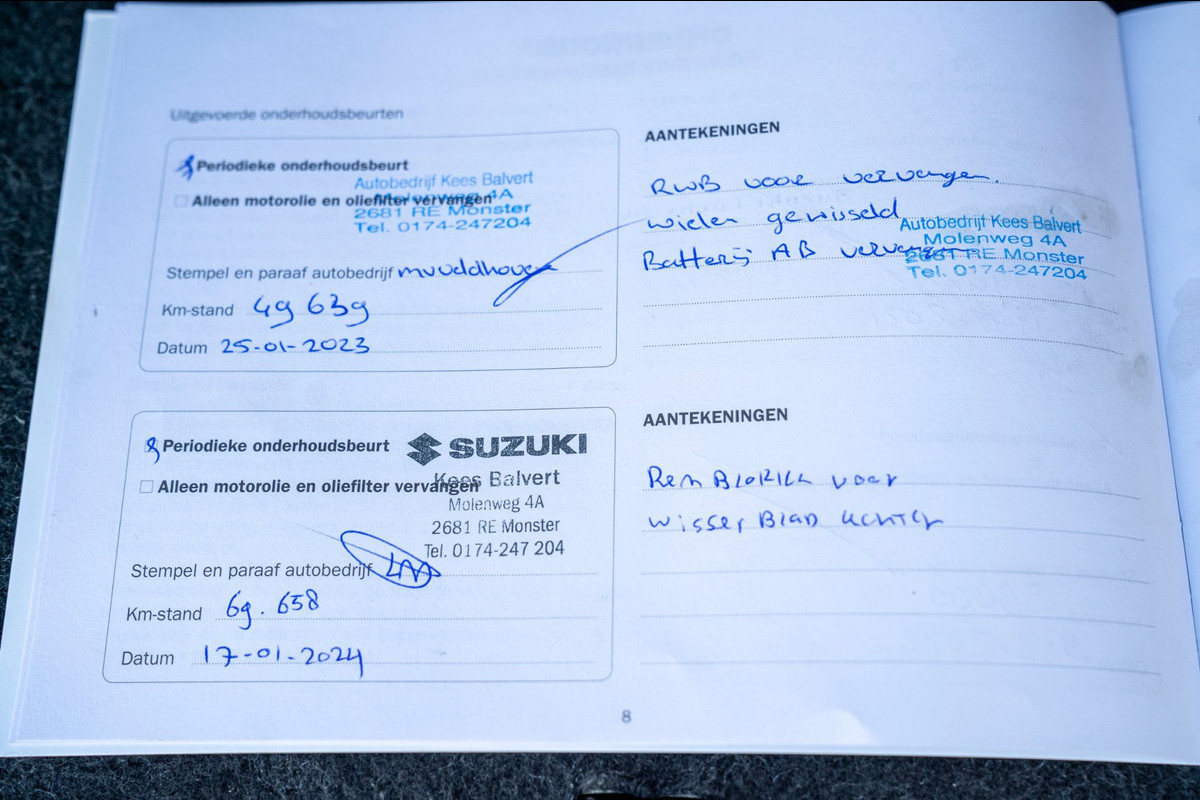 Uitgevoerde onderhoudsbeurten
Periodieke onderhoudsbeurt
Autobedrijf Kees Balvert
Alleen motorolie en oliefilter vervangen
Molenweg 4A
2681 RE Monster
Tel. 0174-247204
Stempel en paraaf autobedrijf
Km-stand 49 639
Datum 25-01-2023
AANTEKENINGEN
RWB voor vervangen.
wielen gewisseld
Autobedrijf Kees Balvert
Molenweg 4A
Batterij AB vervangen
2681 RE Monster
Tel. 0174-247204
Periodieke onderhoudsbeurt
SUZUKI
Kees Balvert
Alleen motorolie en oliefilter vervangen
Molenweg 4A
2681 RE Monster
Tel. 0174-247 204
Stempel en paraaf autobedrijf
Km-stand 69.658
Datum 17-01-2024
AANTEKENINGEN
Rem Blokken voor
wisser Blad achter
8